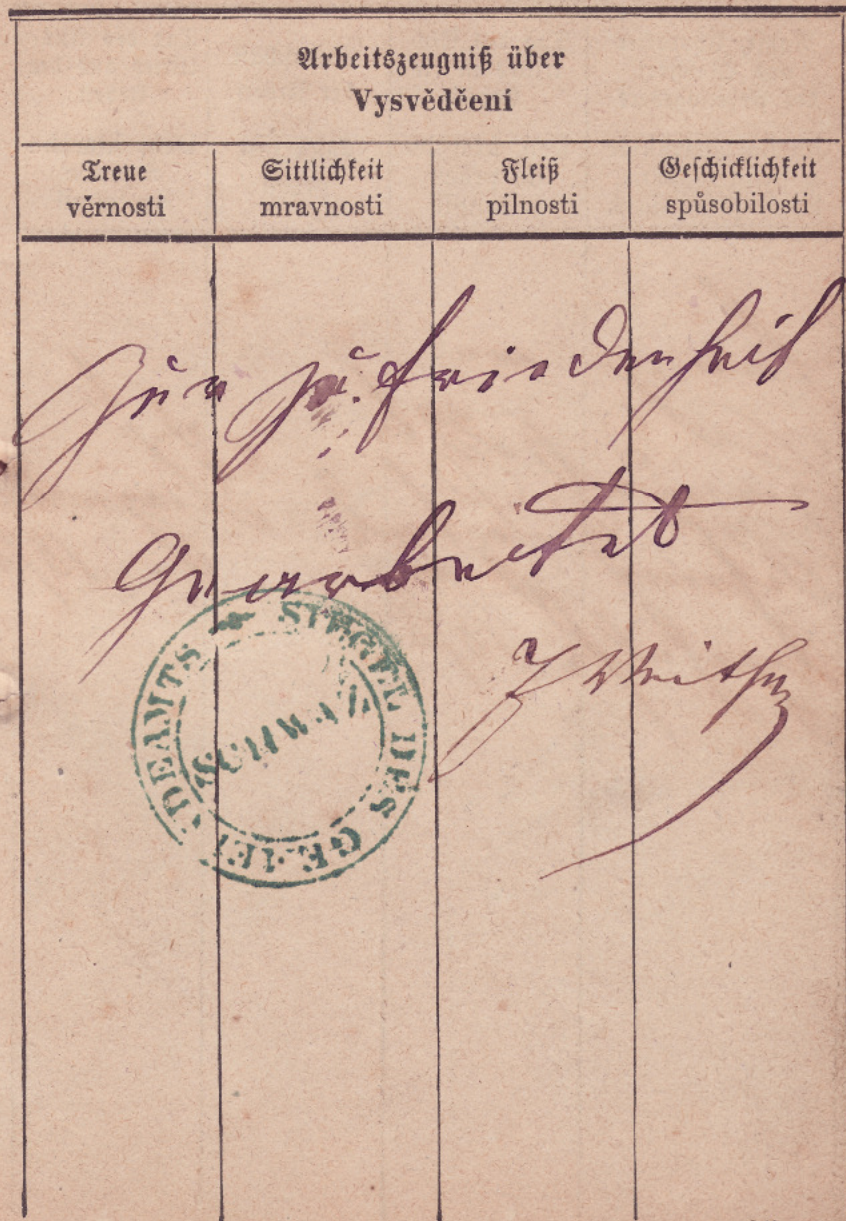 Arbeitszeugniß über
Vysvědčení
Treue
věrnosti
Sittlichkeit
mravnosti
Fleiß
pilnosti
Geschicklichkeit
spůsobilosti
Zur Zufriedenheit
gearbeitet
SIEGEL DES GEMEINDEAMTS
SCHWAZ